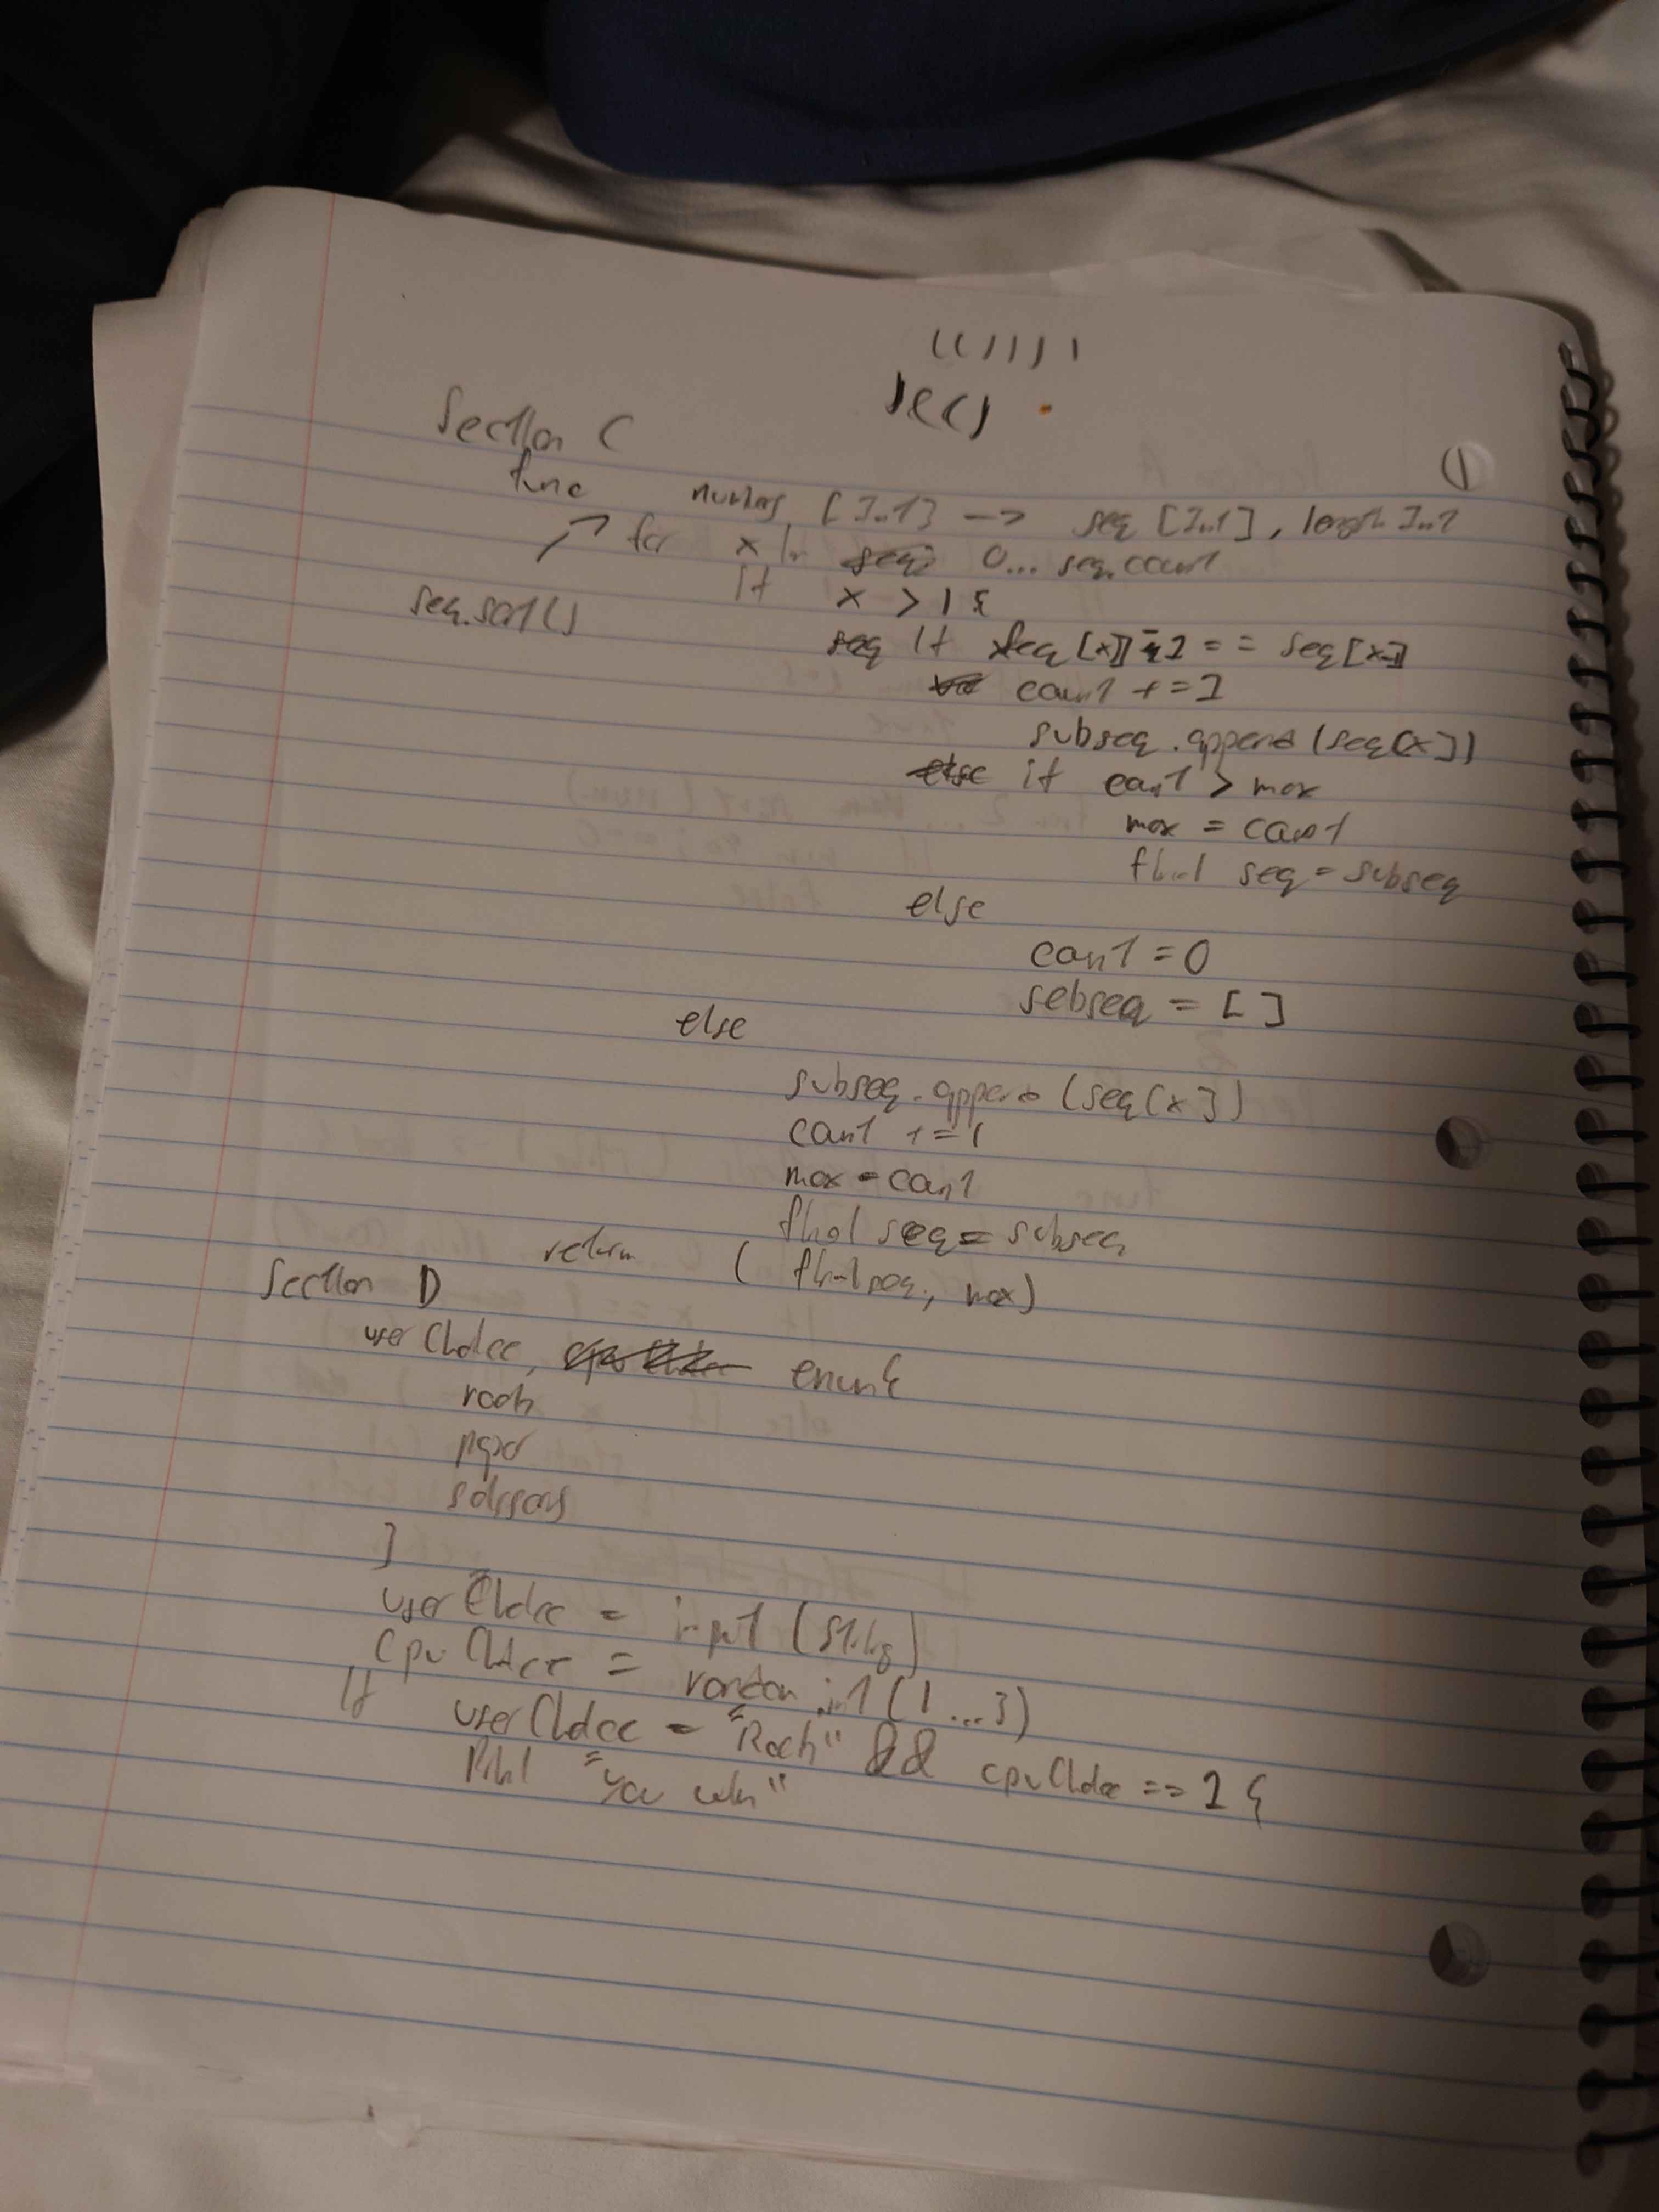 Section C
①
func numbers [Int] -> seq [Int], length Int
for x in 0... seq.count
seq.sort()
if x > 1 {
if seq[x]-1 == seq[x-1]
count += 1
subseq.append(seq[x])
if count > max
max = count
final seq = subseq
else
count = 0
subseq = []
else
subseq.append(seq[x])
count += 1
max = count
final seq = subseq
return (finalseq, max)
Section D
userChoice, enum {
rock
paper
scissors
}
userChoice = input (String)
cpuChoice = random int (1...3)
If userChoice = "Rock" && cpuChoice == 2 {
Print "You win"